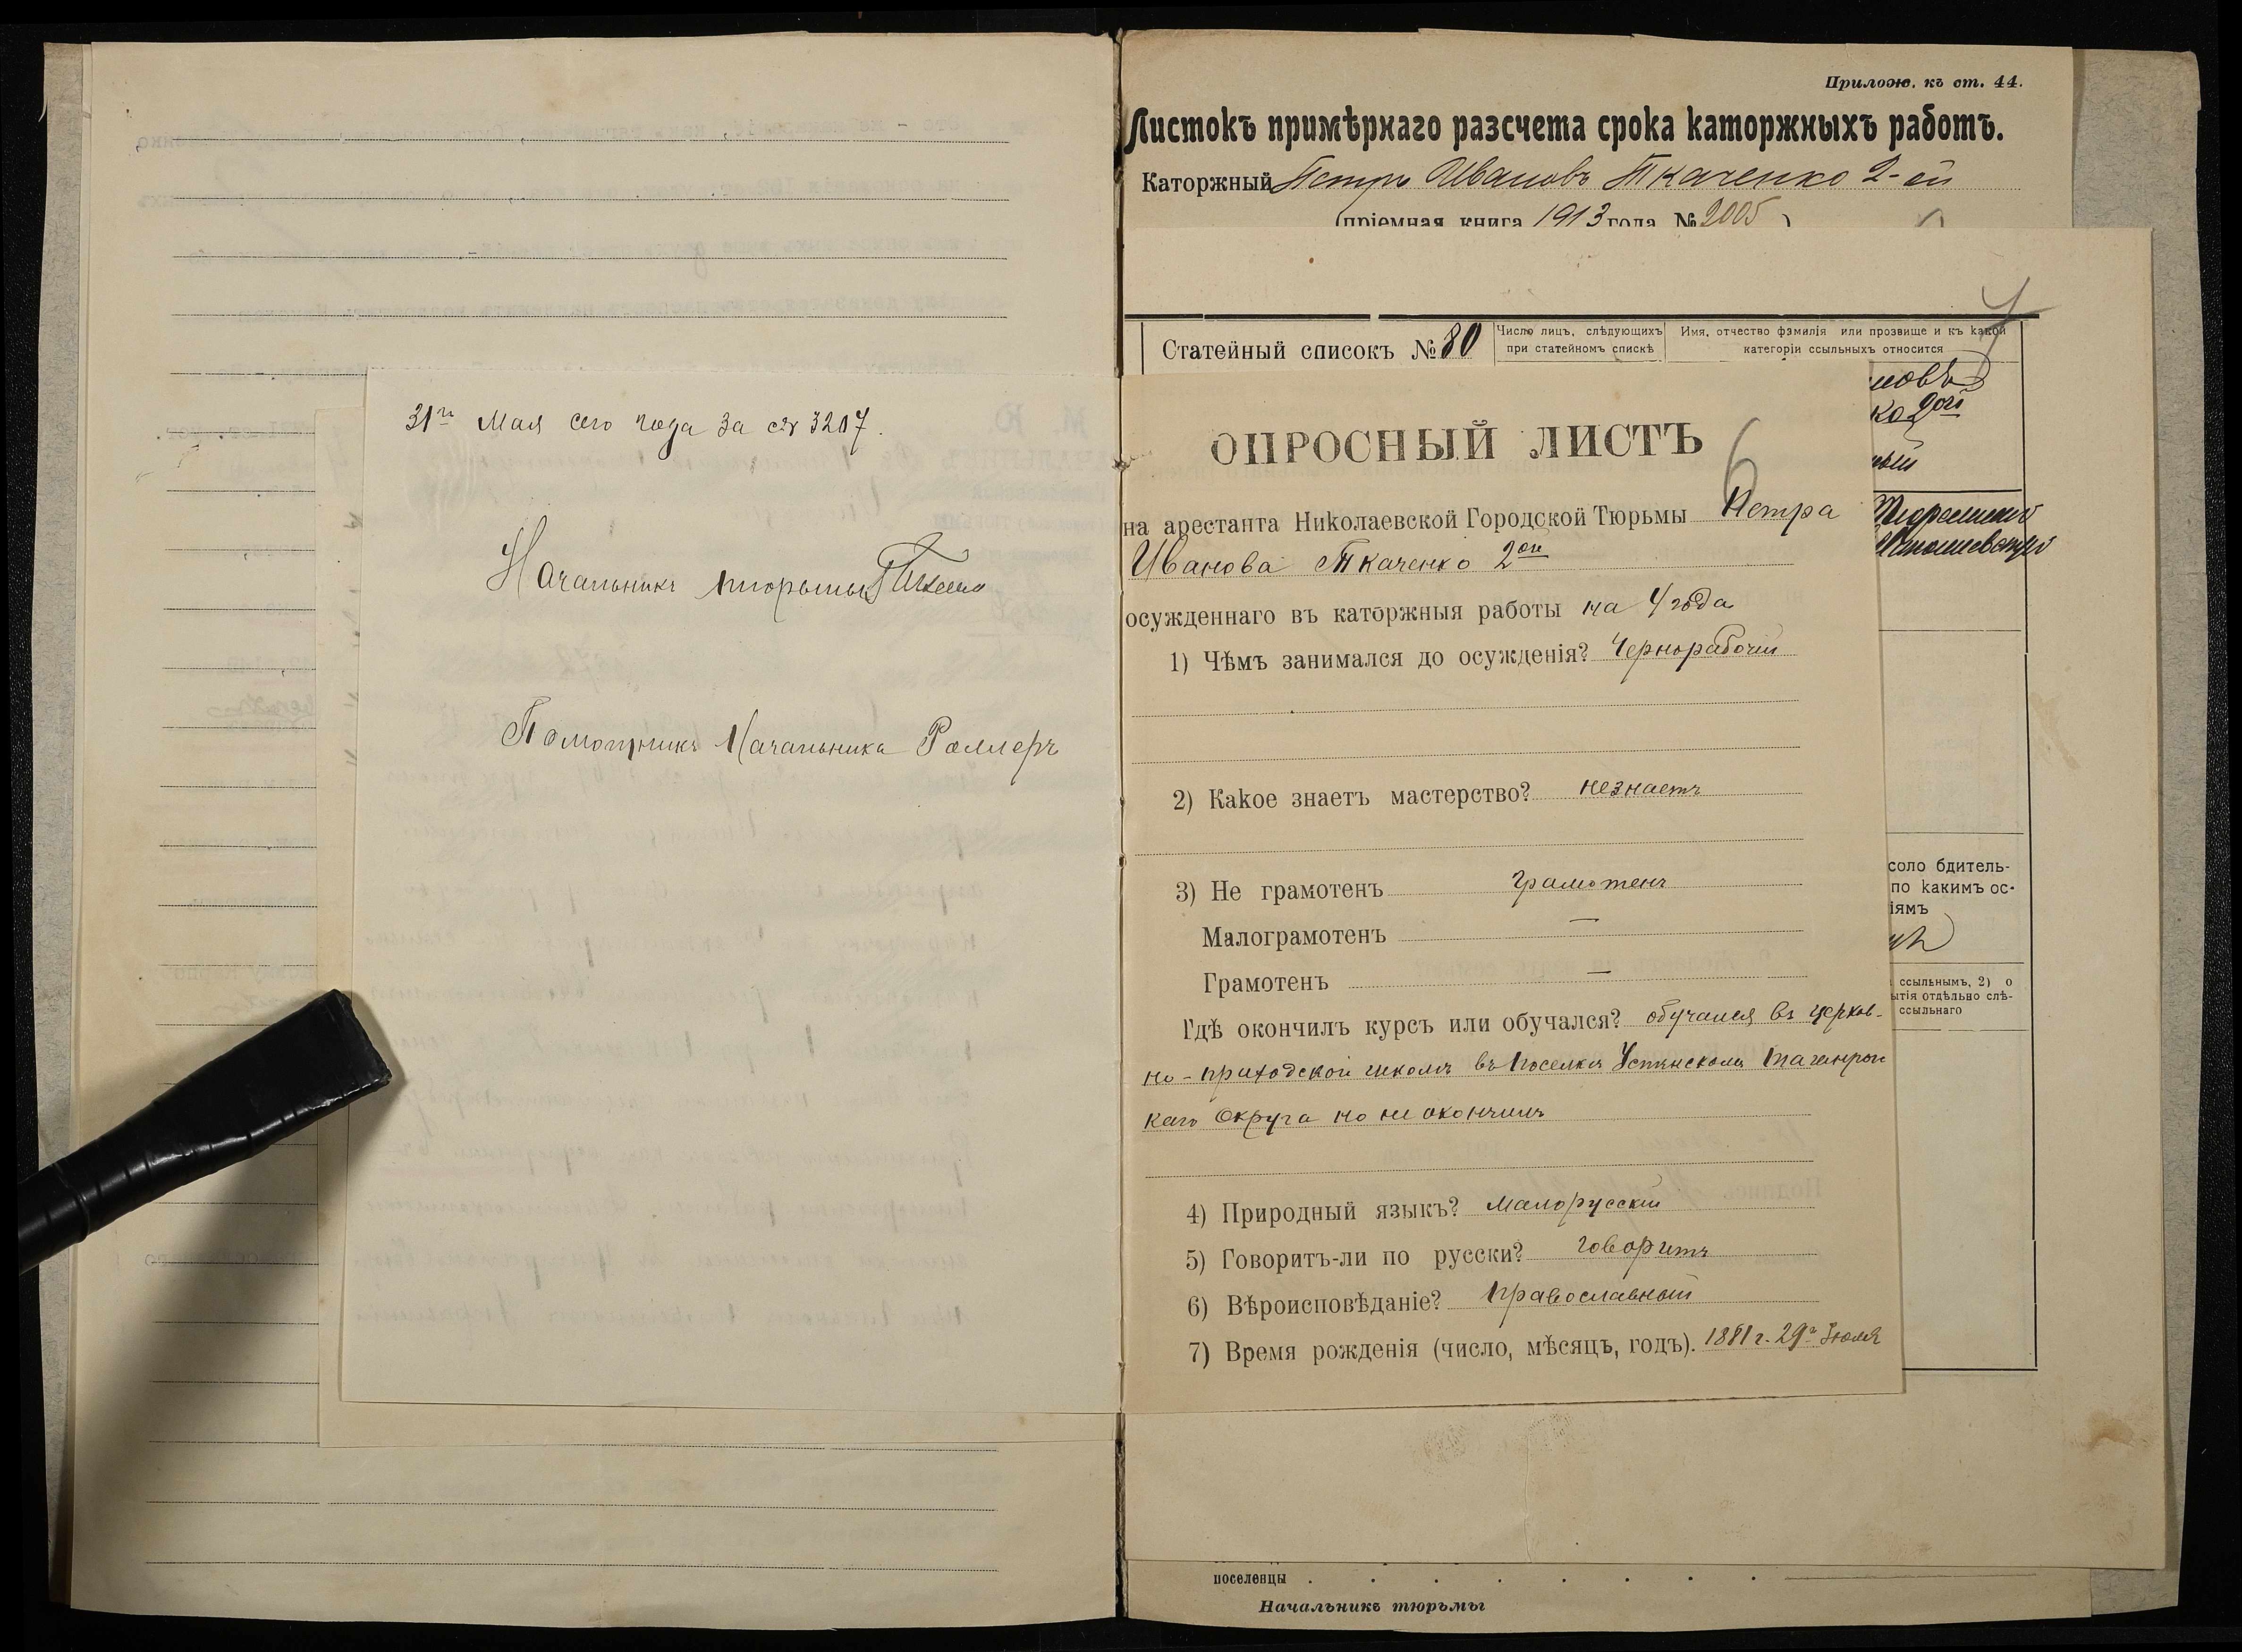 31го Мая сего года за № 3207.
Начальникъ тюрьмы
Помощникъ Начальника Роллеръ
Прилож. къ ст. 44.
Листокъ примѣрнаго разсчета срока каторжныхъ работъ.
Каторжный Петръ Ивановъ Ткаченко 2-ой
(пріемная книга 1913 года № 2005)
7
Статейный списокъ № 80
Число лицъ, слѣдующихъ при статейномъ спискѣ
Имя, отчество фамилія или прозвище и къ какой категоріи ссыльныхъ относится
новъ
ко 2ой
ный
ОПРОСНЫЙ ЛИСТЪ
6
на арестанта Николаевской Городской Тюрьмы Петра
Иванова Ткаченко 2ой
осужденнаго въ каторжныя работы на 4 года
1) Чѣмъ занимался до осужденія? Чернорабочій
2) Какое знаетъ мастерство? незнаетъ
3) Не грамотенъ грамотенъ
Малограмотенъ —
Грамотенъ —
Гдѣ окончилъ курсъ или обучался? обучался въ церков-
но-приходской школѣ въ поселкѣ Успенскомъ Таганрогс
каго Округа но не окончилъ
4) Природный языкъ? Малорусскій
5) Говоритъ-ли по русски? говоритъ
6) Вѣроисповѣданіе? Православный
7) Время рожденія (число, мѣсяцъ, годъ). 1881 г. 29го Іюля
соло бдитель-
по какимъ ос-
іямъ
ссыльнымъ, 2) о
ытія отдѣльно слѣ-
ссыльнаго
поселенцы
Начальникъ тюрьмы